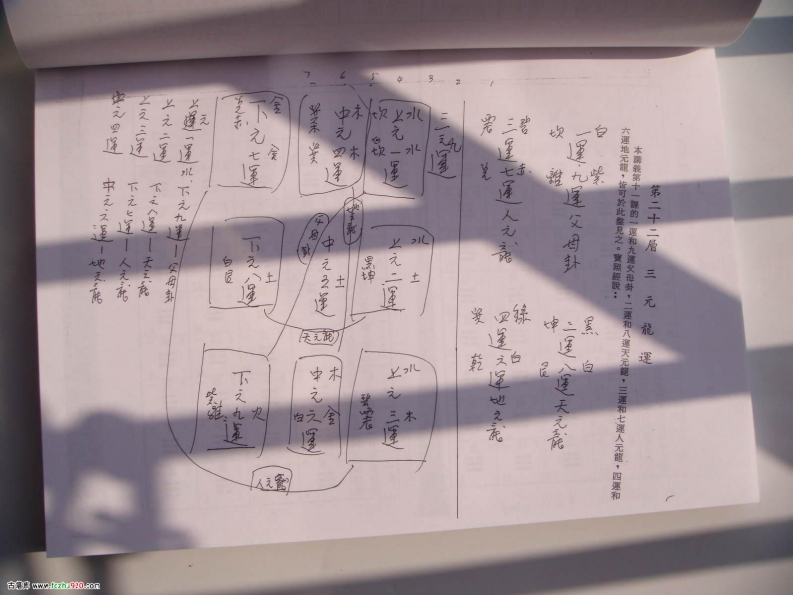 第二十二層 三元龍運
本講義第十一課的一運和九運父母卦，二運和八運天元龍，三運和七運人元龍，四運和
六運地元龍，皆可於此盤見之。寶照經說：
白 紫
一運九運父母卦
坎 離
黑 白
二運八運天元龍
坤 艮
碧 赤
三運七運人元龍
震 兌
綠 白
四運六運地元龍
巽 乾
1
2
3
4
5
6
7
三元九運
水 水
上元一運
坎
水 土
上元二運
黑坤
水 木
上元三運
碧震
木 木
中元四運
巽
土
中元五運
木 金
中元六運
白
金 金
下元七運
土
下元八運
白艮
火
下元九運
紫離
父母卦
地元龍
天元龍
人元龍
上元一運 水 下元九運—父母卦
上元二運 下元八運—天元龍
上元三運 下元七運—人元龍
中元四運 中元六運—地元龍
古籍库 www.fczha920.com